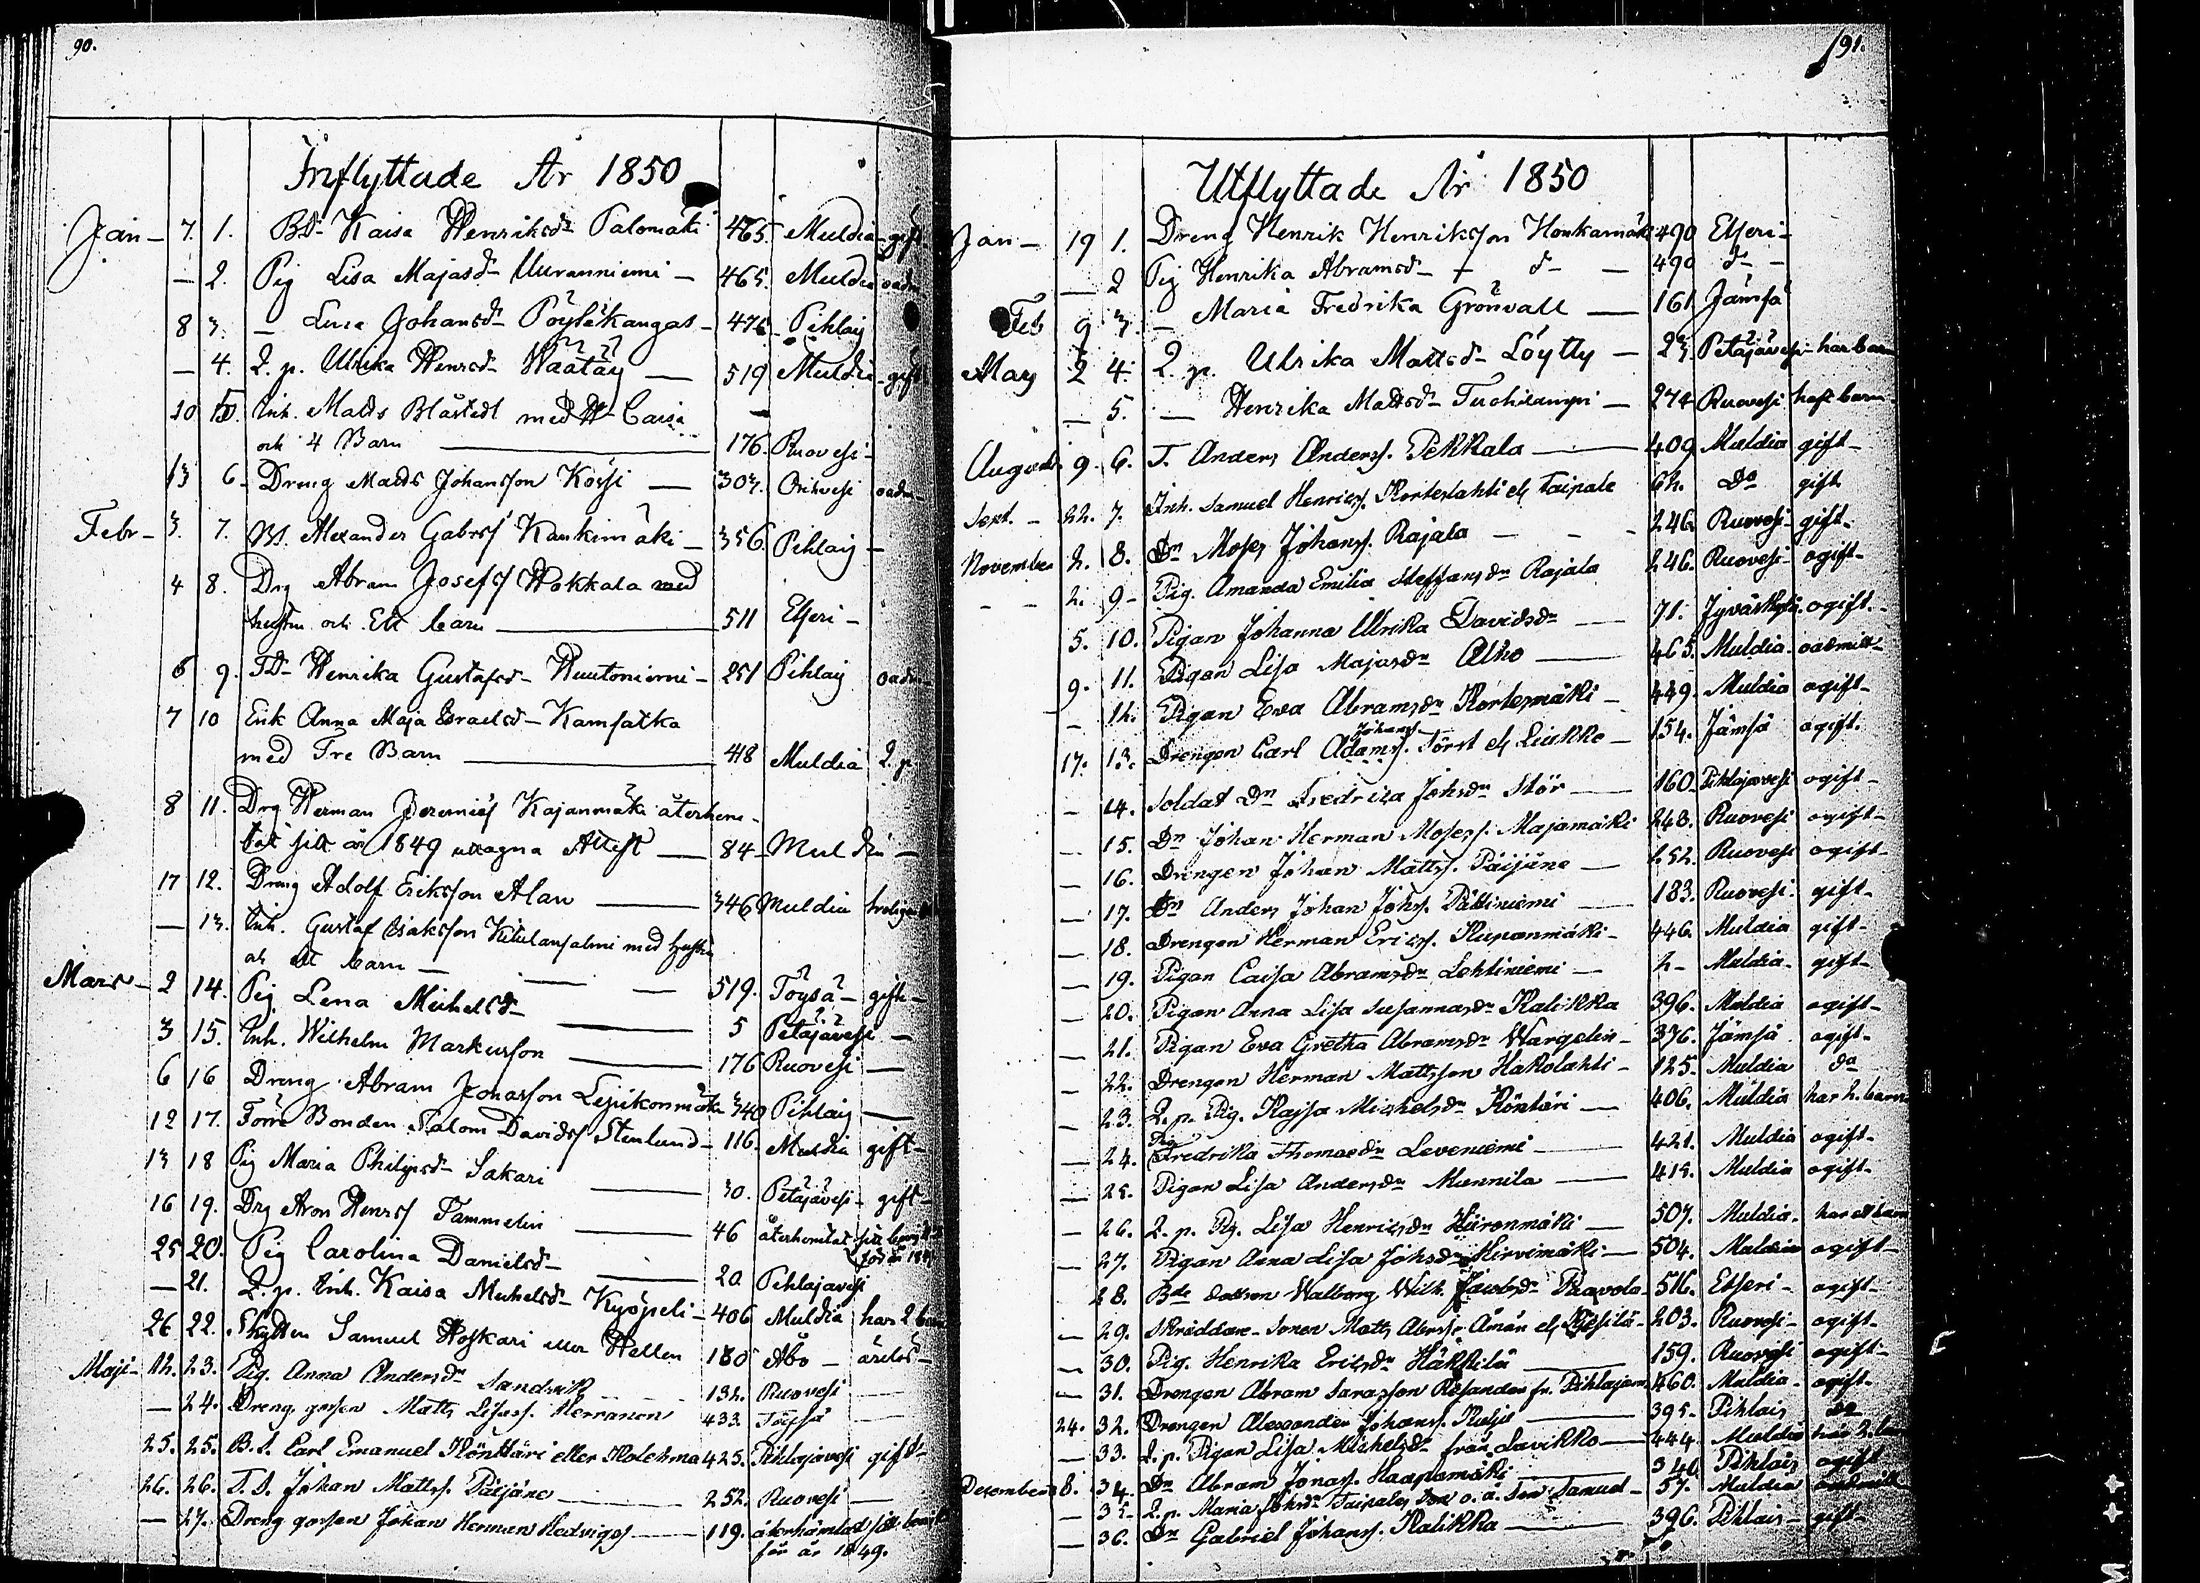 90.
Inflyttade År 1850
Jan - 7. 1. Bd. Kaisa Henriksdr Palomäki 465. Muldia - gift
- 2. Pig Lisa Majasdr Uuranniemi - 465. Muldia oadm
8 3. - Lisa Johansdr Pöyhkangas - 475 - Pihlaij
- 4. Q. p. Ulrika Henrsdr Wäätäy - 519 Muldia - gift
10 5. Inh. Matts Blåstedt med H- Caisa
och 4 Barn - 176. Ruovesi -
13 6. Dreng Matts Johansson Kössi - 303. Orihvesi oadm
Febr - 3. 7. Bs. Alexander Gabrss Kaukimäki - 356. Pihlaij -
4 8. Drg Abram Josefss Hokkala med
hustru och Ett barn - 511 Etseri -
6 9. TD- Henrika Gustafsd- Huutoniemi - 251 Pihlaij oadm
7 10 Enk Anna Maja Israelsd- Kamsatka
med Tre Barn - 418 Muldia Q. p
8 11. Drg Herman Jeremiæs Kajanmäki återhem-
tat sitt år 1849 uttagna Attest - 84 - Muldia -
17 12. Dreng Adolf Eriksson Alan - 346 Muldia
- 13. Inh. Gustaf Isaksson Kitulansalmi med hustru
och Ett barn - 519. Töysä - gift -
Mars - 2 14. Pig Lena Michelsd- - 5 Petäjävesi -
3 15. Inh. Wilhelm Markusson - 176 Ruovesi -
6 16 Dreng Abram Jonasson Lepikonmäki 340 Pihlaij -
12 17. Torp Bonden Salom Davidss Stenlund - 116. Muldia gift -
13 18 Pig Maria Philipsd- Sakari - 30. Petäjävesi - gift -
16 19. Drg Aron Henrss Tammelin - 46 återhemtat sitt
för år 18
25 20. Pig Carolina Danielsd- - 20 Pihlajavesi
- 21. Q. p. Inh. Kaisa Michelsd- Kyöpeli - 406 Muldia har 2 barn
26 22. Skytten Samuel Koskari eller Hellen 180 Åbo -
Maji - 12. 23. Pig. Anna Andersdr Sandvik - 132. Ruovesi -
- 24. Dreng gossen Matts Lisass. Herranen 433. Töysä -
25. 25. B. S. Carl Emanuel Könttäri eller Kolehma 425. Pihlajavesi gift -
26. 26. T. S. Johan Mattss. Päijäne - 252. Ruovesi -
- 27. Dreng gossen Johan Herman Hedvigss - 119. återhämtat sitt bevis
för år 1849.
91.
Utflyttade År 1850
Jan - 19 1. Dreng Henrik Henriksson Honkamäki 490 Etseri -
- 2 Pig Henrika Abramsd- - d- - 490 d- -
Feb 9 3. - Maria Fredrika Grönvall - 161. Jämsä
Mars 2 4. Q. p. Ulrika Mattsd- Löytty - 23. Petäjävesi - har barn
- 5. - Henrika Mattsd- Tuohilampi - 274 Ruovesi haft barn
Augusti 9. 6. T. Anders Anderss. Pekkala - 409. Muldia gift -
Sept. - 22. 7. Inh. Samuel Henricss. Korteslahti ell. Taipale 62. Do gift
November 2. 8. Dn Moses Johanss. Rajala - - - 246. Ruovesi - gift -
- - 2. 9 - Pig. Amanda Emilia Steffansdr Rajala 246. Ruovesi - ogift -
5. 10. Pigan Johanna Ulrika Davidsdr - 71. Jyväskylä. ogift -
9. 11. Pigan Lisa Majasdr Alho - 465. Muldia. oadmitt -
- 12. Pigan Eva Abramsdr Kortesmäki - 449. Muldia ogift -
Johans
17. 13. Drengen Carl Adamss. Törst ell. Liukko - 154. Jämsä ogift.
- 14. Soldat Dn Fredrica Johsdr Stör - 160. Pihlajavesi ogift -
- 15. Dn Johan Herman Mosess. Majamäki 248. Ruovesi ogift -
- 16. Drengen Johan Mattss. Päijäne - 252. Ruovesi ogift -
- 17. Dn Anders Johan Johss. Pättiniemi - 183. Ruovesi. gift -
- 18. Drengen Herman Ericss. Kuparmäki - 446. Muldia gift -
- 19. Pigan Caisa Abramsdr Lehtiniemi - 2 - Muldia. gift -
- 20. Pigan Anna Lisa Susannasdr Kalikka 396. Muldia ogift -
- 21. Pigan Eva Gretha Abramsdr Wargelin - 376. Jämsä ogift -
- 22. Drengen Herman Mattsson Hakolahti - 125. Muldia do
- 23. Q. p. Pig. Kajsa Michelsdr Köntäri - 406. Muldia har 2. barn
- 24. Pig Fredrika Thomasdr Leveniemi - 421. Muldia ogift -
- 25. Pigan Lisa Andersdr Mannila - 418. Muldia ogift -
- 26. Q. p. Pig. Lisa Henricsdr Hiironmäki - 507. Muldia. har ett barn
- 27. Pigan Anna Lisa Johsdr Hirvimäki - 504. Muldia ogift -
28. Bde dottren Walborg Wilh. Jacobsdr Paavola - 516. Etseri - ogift -
- 29. Skräddare-Sonen Matts Abrss. Åman ell. 203. Ruovesi - ogift -
- 30. Pig. Henrika Ericsdr Häkkilä - 159. Ruovesi ogift -
- 31. Drengen Abram Sarasson Rosander fr. Pihlajav. 460. Muldia - ogift -
24. 32. Drengen Alexander Johanss. Kulju - 395. Pihlais do
- 33. Q. p. Pigan Lisa Michelsdr från Lavikko - 444. Muldia har 2. barn
December 8. 34. Dn Abram Jonass. Haapamäki - 340. Pihlais ogift
- 35. Q. p. Maria Johsdr Taipales Son o. ä. Son Samuel - 57. Muldia oadmitt
- 36. Dn Gabriel Johanss. Kalikka - 396. Pihlais - gift -